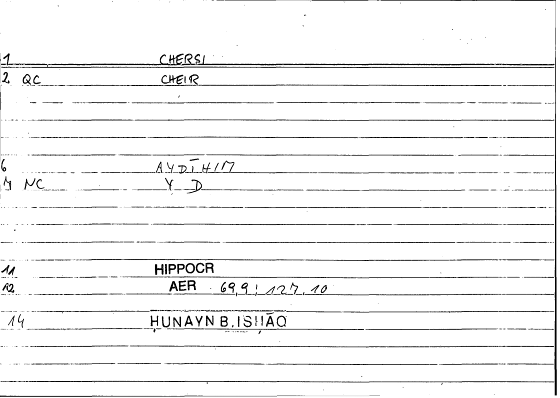 1 CHERSI
2 QC CHEIR
6 AYDĪHIM
NC Y D
11 HIPPOCR
12 AER 69,9; 127,10
14 ḤUNAYN B. ISḤĀQ